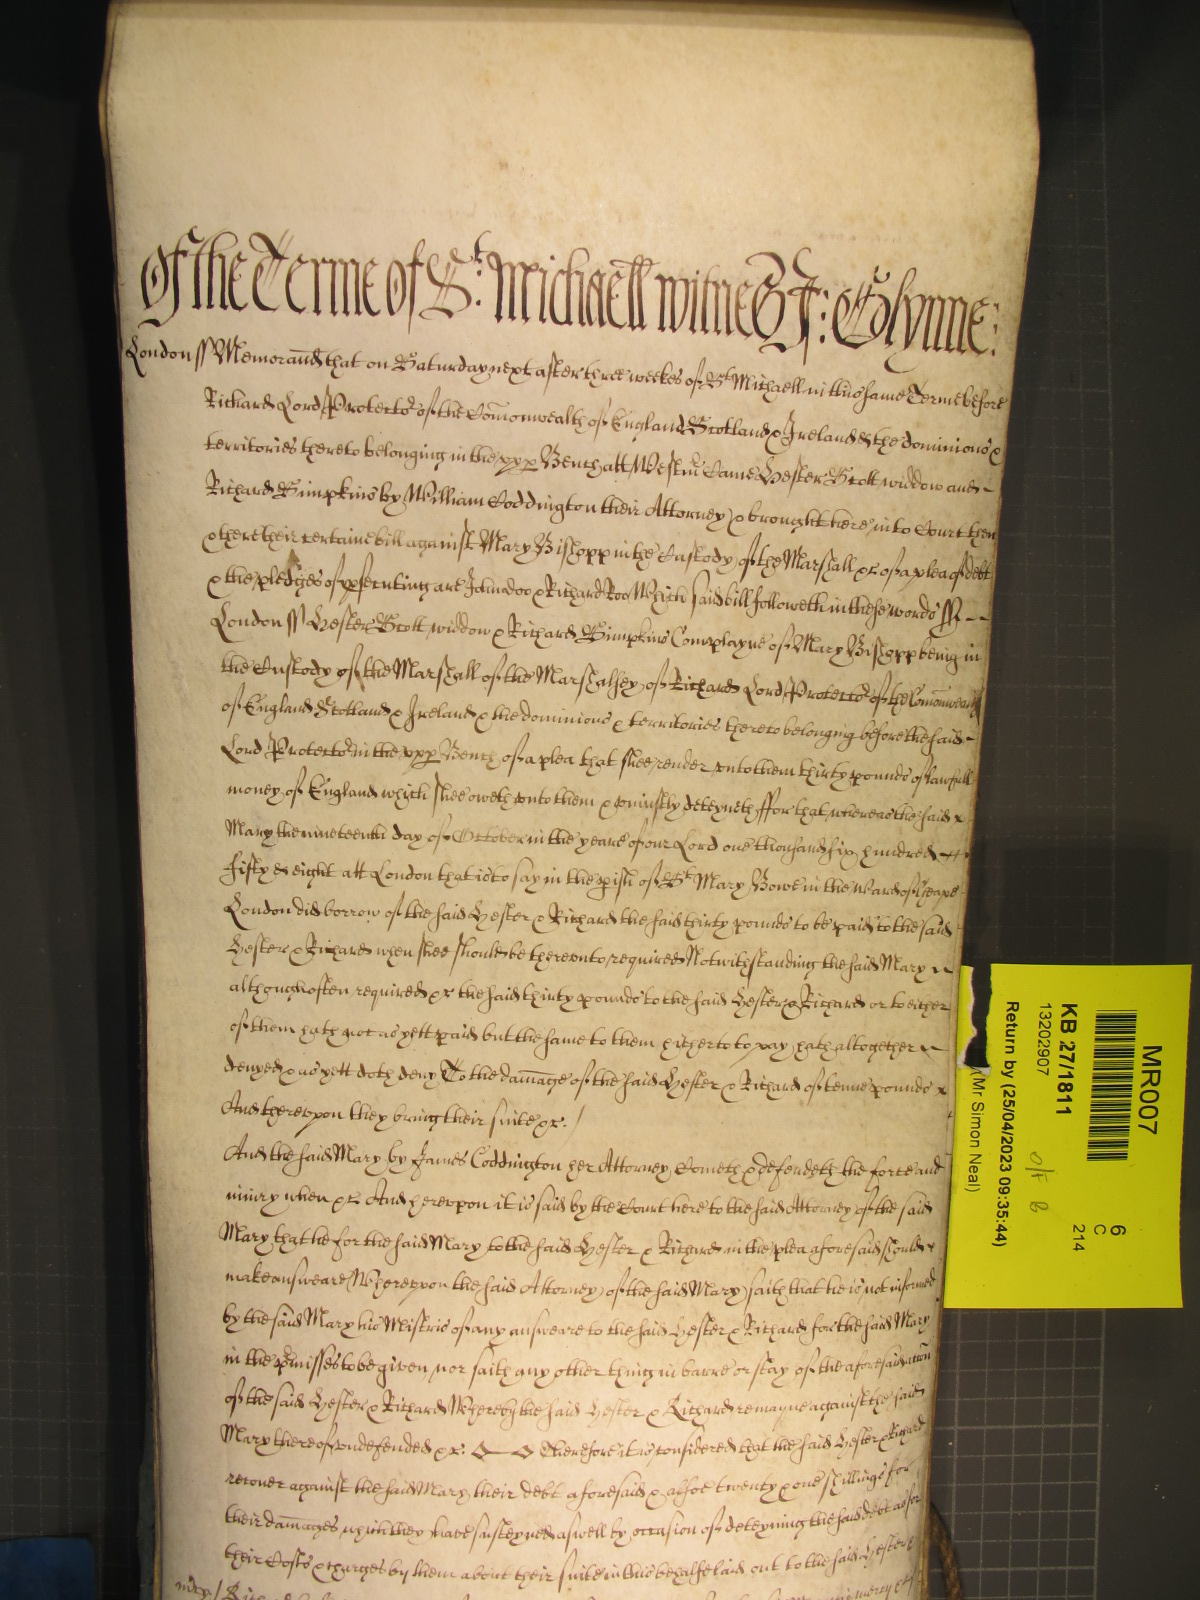 Of the Terme of St: Michaell witnes J: Glynne:
London ss Memorand that on Saturday next after three weekes of St Michaell in this same Terme before
Richard Lord Protector of the Comonwealth of England Scotland & Ireland & the dominions &
territories thereto belonging in the upp Bench att Westmr Came Hester Scott widdow and
Richard Simpkins by William Coddington their Attorney & brought here into Court then
& there their certaine bill against Mary Bishopp in the Custody of the Marshall &c of a plea of debt
& the pledges of psecuting are John doo & Richard Roo Which said bill followeth in these words ss
London ss Hester Scott widdow & Richard Simpkins Complayne of Mary Bishopp being in
the Custody of the Marshall of the Marshalsey of Richard Lord Protector of the Comonwealth
of England Scotland & Ireland & the dominions & territories thereto belonging before the said
Lord Protector in the upp Bench of a plea that shee render unto them thirty pounds of lawfull
money of England which shee oweth unto them & uniustly deteyneth ffor that whereas the said
Mary the nineteenth day of October in the yeare of our Lord one thousand six hundred
fifty & eight att London that is to say in the pish of St Mary Bowe in the Ward of Cheape
London did borrow of the said Hester & Richard the said thirty pounds to be paid to the said
Hester & Richard when shee should be thereunto required Notwithstanding the said Mary
although often required &c the said thirty pounds to the said Hester & Richard or to either
of them hath not as yett paid but the same to them hitherto to pay hath altogether
denyed & as yett doth deny To the damage of the said Hester & Richard of tenne pounds
And thereupon they bring their suite &c.
And the said Mary by James Coddington her Attorney Cometh & defendeth the force and
iniury when &c And hereupon it is said by the Court here to the said Attorney of the said
Mary that he for the said Mary to the said Hester & Richard in the plea aforesaid should
make answeare Whereupon the said Attorney of the said Mary saith that he is not informed
by the said Mary his Mistris of any answeare to the said Hester & Richard for the said Mary
in the pmisses to be given nor saith any other thing in barre or stay of the aforesaid accon
of the said Hester & Richard Whereby the said Hester & Richard remayne against the said
Mary thereof undefended &c. Therefore it is considered that the said Hester & Richard
recouer against the said Mary their debt aforesaid & alsoe twenty & one shillings for
their damages which they have susteyned aswell by occasion of deteyning the said debt as for
their Costs & charges by them about their suite in this behalfe laid out to the said Hester &
mcy
MR007
6
C
214
KB 27/1811
13202907
o/t B
Return by (25/04/2023 09:35:44)
(Mr Simon Neal)